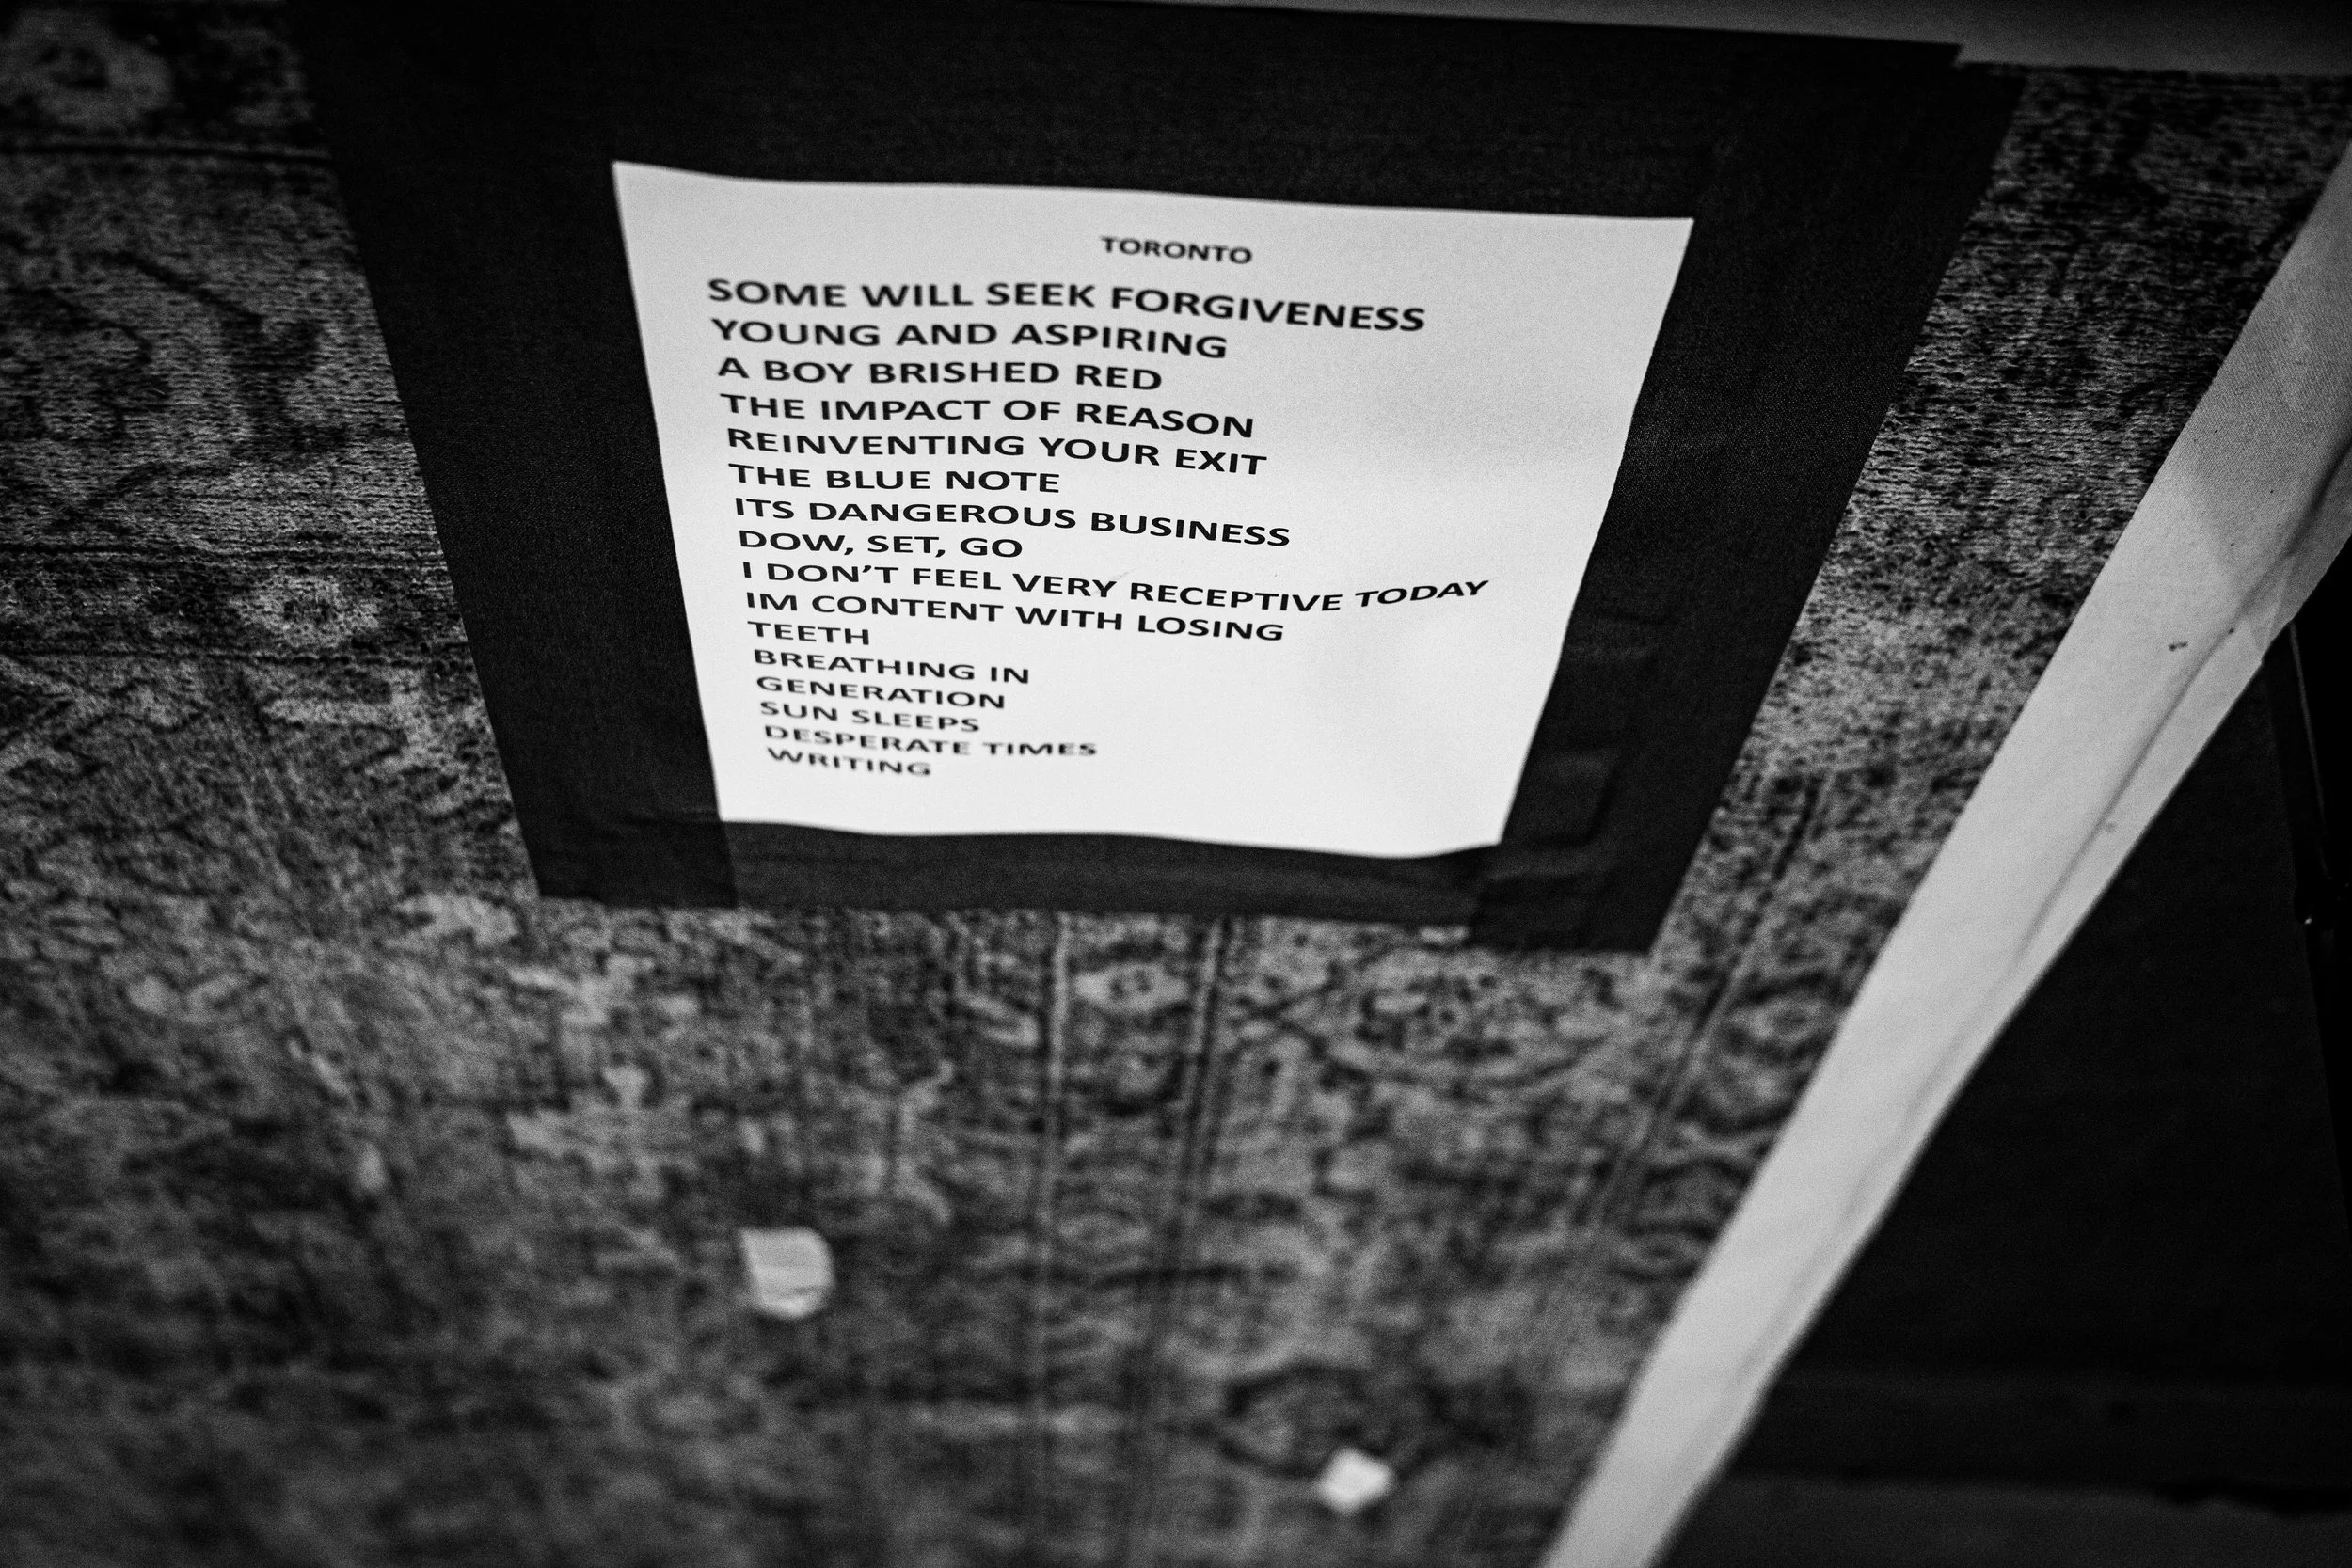 TORONTO
SOME WILL SEEK FORGIVENESS
YOUNG AND ASPIRING
A BOY BRISHED RED
THE IMPACT OF REASON
REINVENTING YOUR EXIT
THE BLUE NOTE
ITS DANGEROUS BUSINESS
DOW, SET, GO
I DON'T FEEL VERY RECEPTIVE TODAY
IM CONTENT WITH LOSING
TEETH
BREATHING IN
GENERATION
SUN SLEEPS
DESPERATE TIMES
WRITING